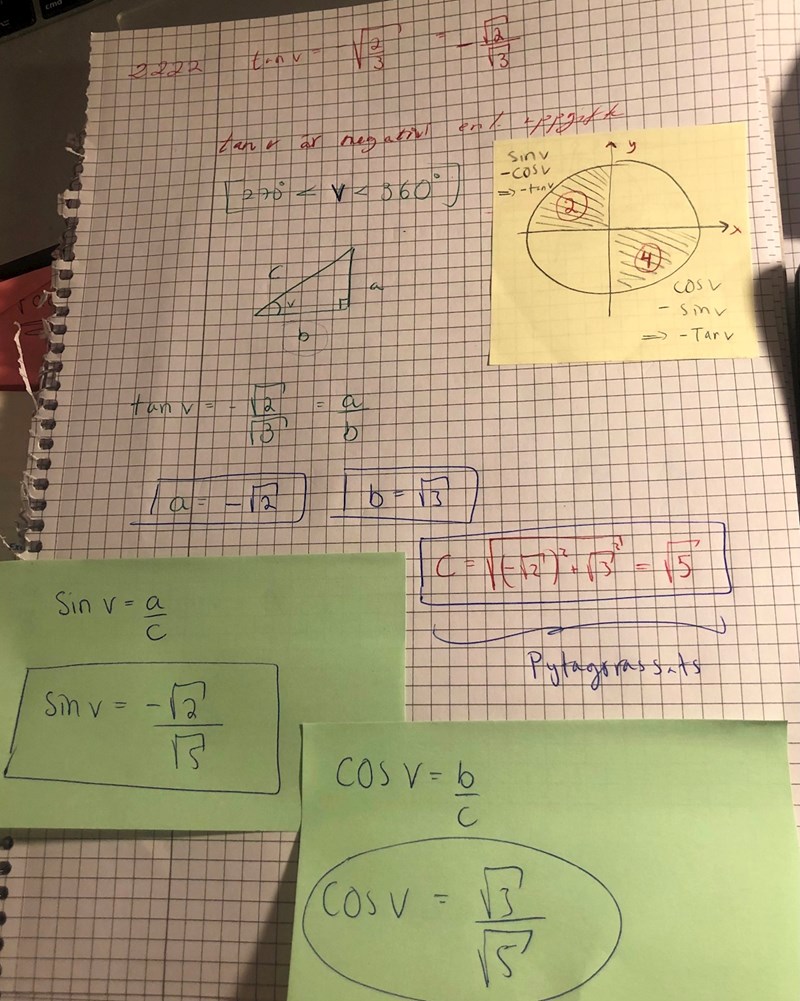 2222 tan v = √(2/3) = -√2/√3
tan v är negativt enl. uppgift
[270° < v < 360°]
sin v
-cos v
=> -tan v
y
x
2
4
cos v
- sin v
=> -Tan v
c
a
v
b
tan v = -√2/√3 = a/b
a = -√2
b = √3
C = √((-√2)² + √3²) = √5
Pytagorassats
Sin v = a/c
Sin v = -√2/√5
COS V = b/c
COS V = √3/√5